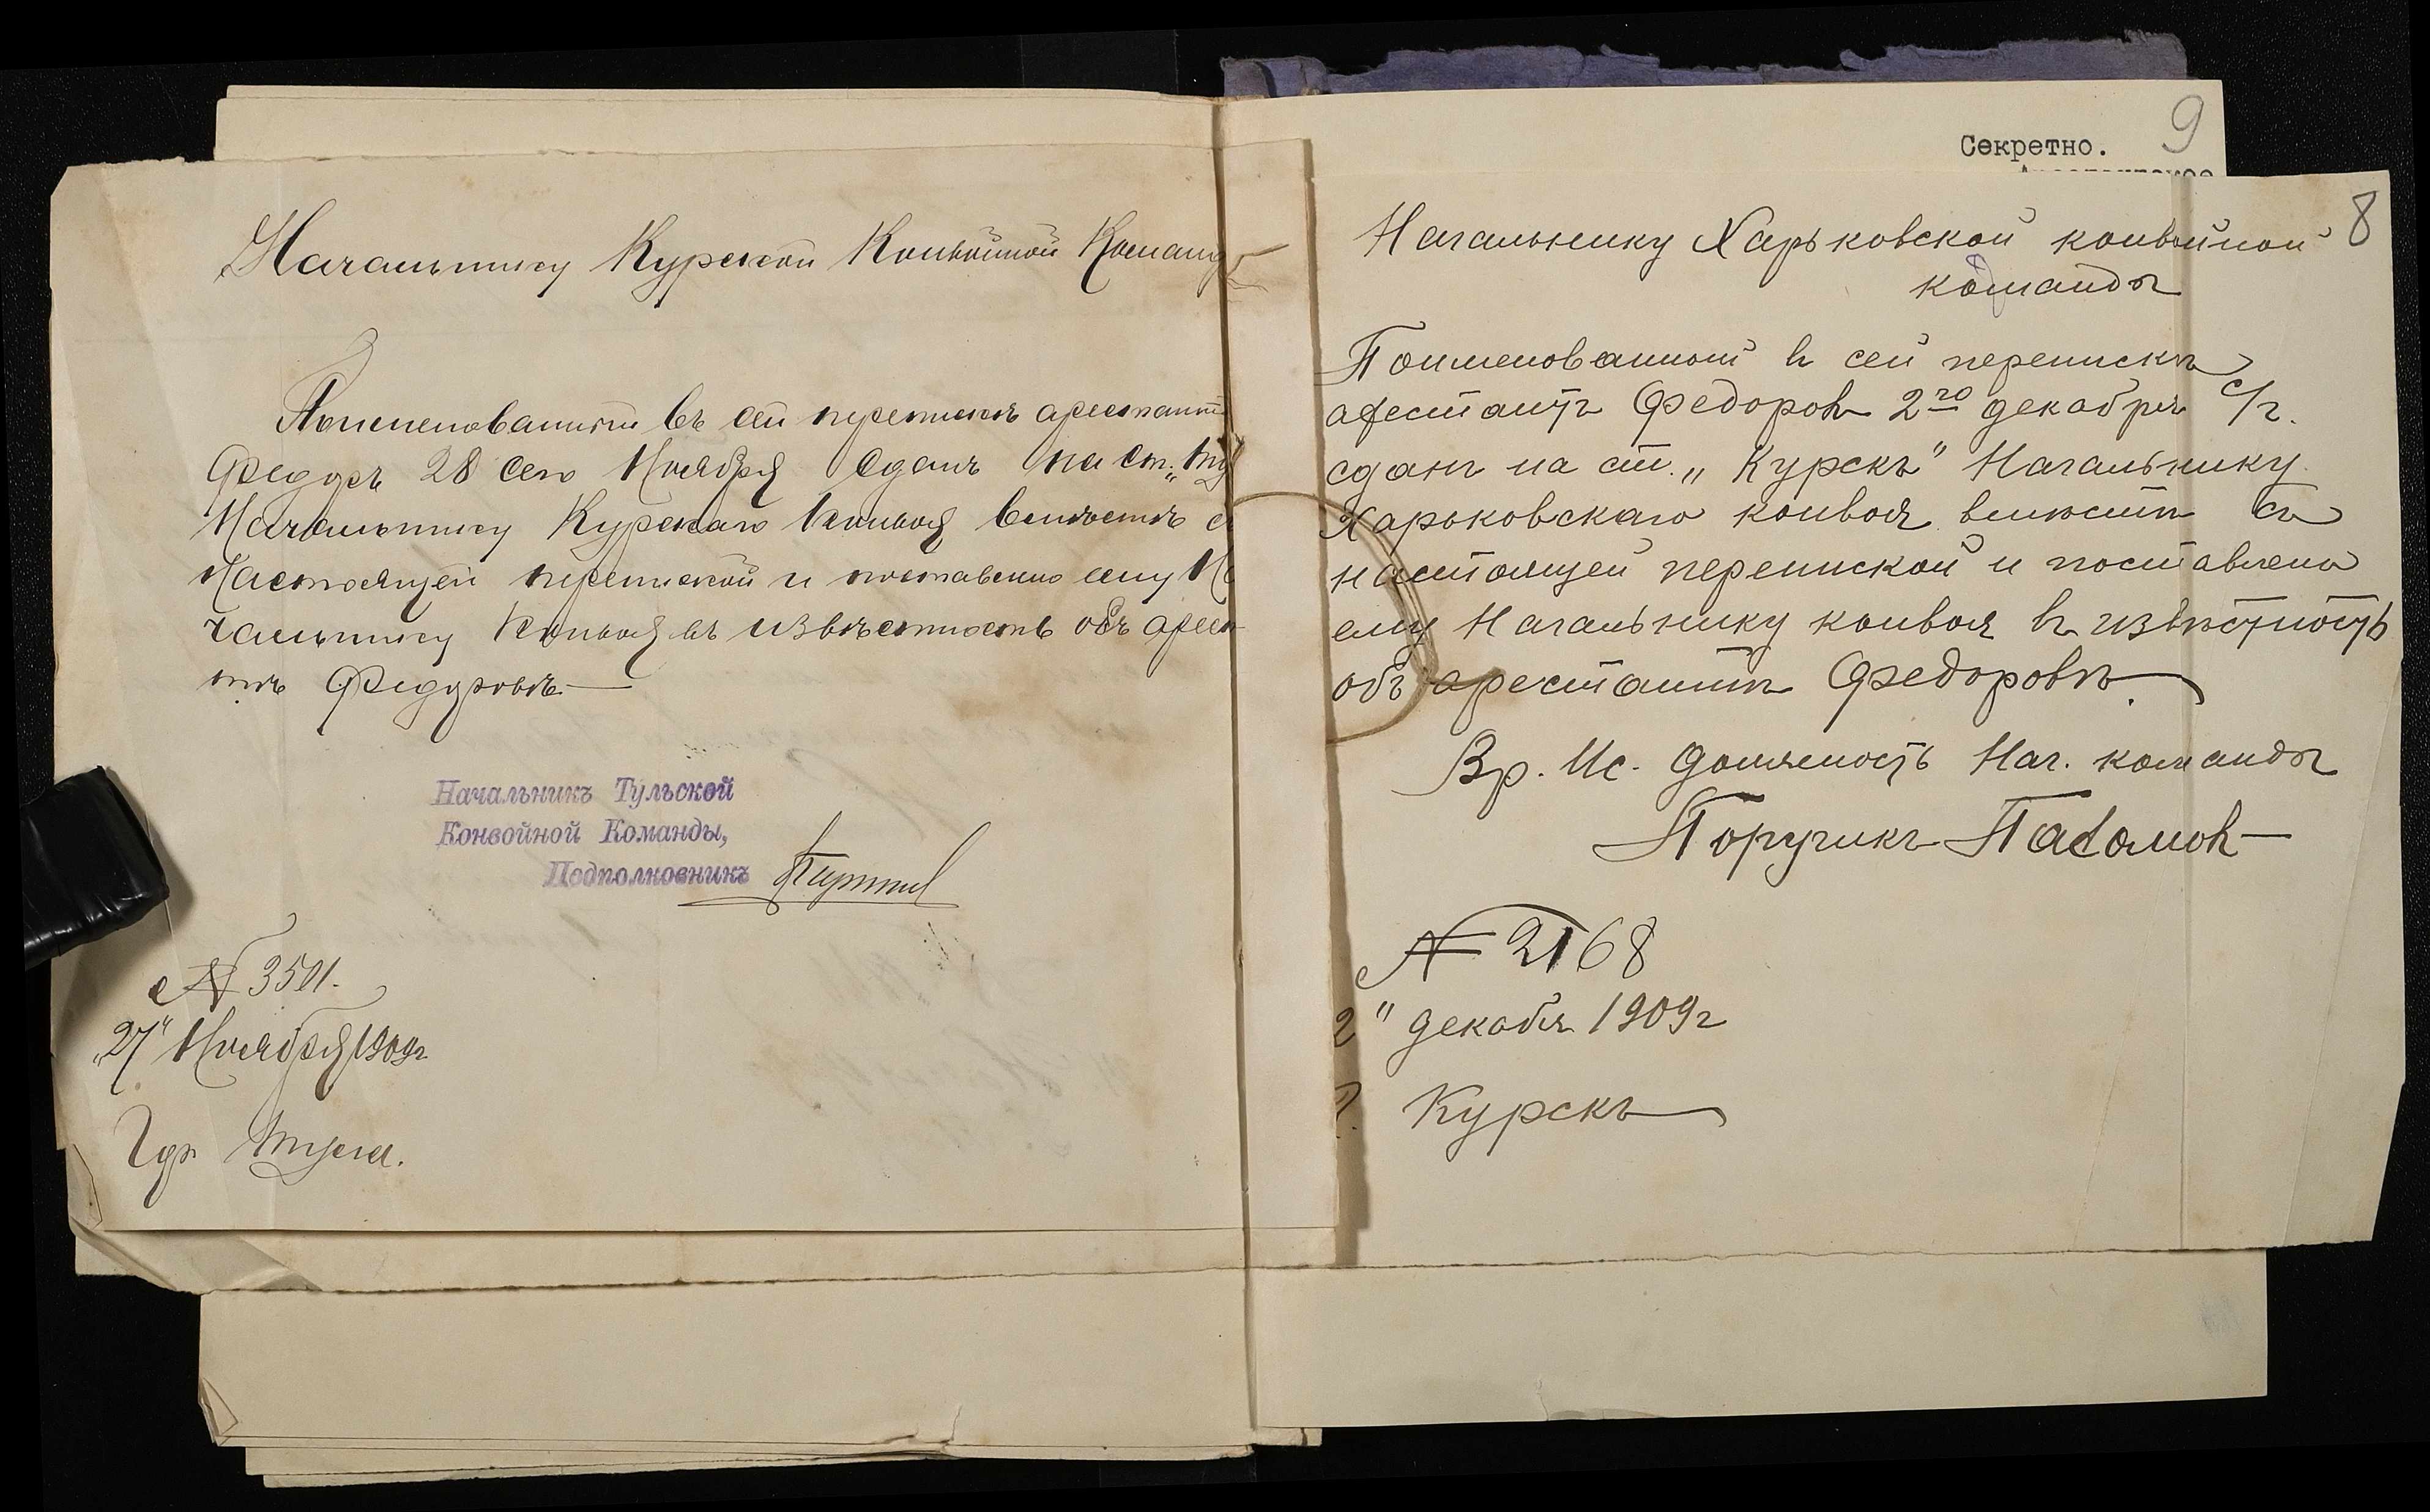 Начальнику Курской Конвойной Команд
Поименованный въ сей перепискѣ арестантъ
Федоръ 28 сего Ноября сданъ на ст. „Ту
Начальнику Курскаго Конвоя вмѣстѣ с
настоящей перепиской и поставлено ему На
чальнику Конвоя въ извѣстность объ арест
тѣ Федоровѣ
Начальникъ Тульской
Конвойной Команды,
Подполковникъ
№ 3501.
„27" Ноября 1909г
Гор. Тула.
Секретно. 9
8
Начальнику Харьковской конвойной
команды
Поименованный въ сей перепискѣ
арестантъ Федоровъ 2го декабря с/г.
сданъ на ст. „Курскъ" Начальнику
Харьковскаго конвоя вмѣстѣ съ
настоящей перепиской и поставлено
ему Начальнику конвоя въ извѣстность
объ арестантѣ Федоровѣ.
Вр. Ис. должность Нач. команды
Поручикъ
№ 2168
2" декабря 1909г
г. Курскъ